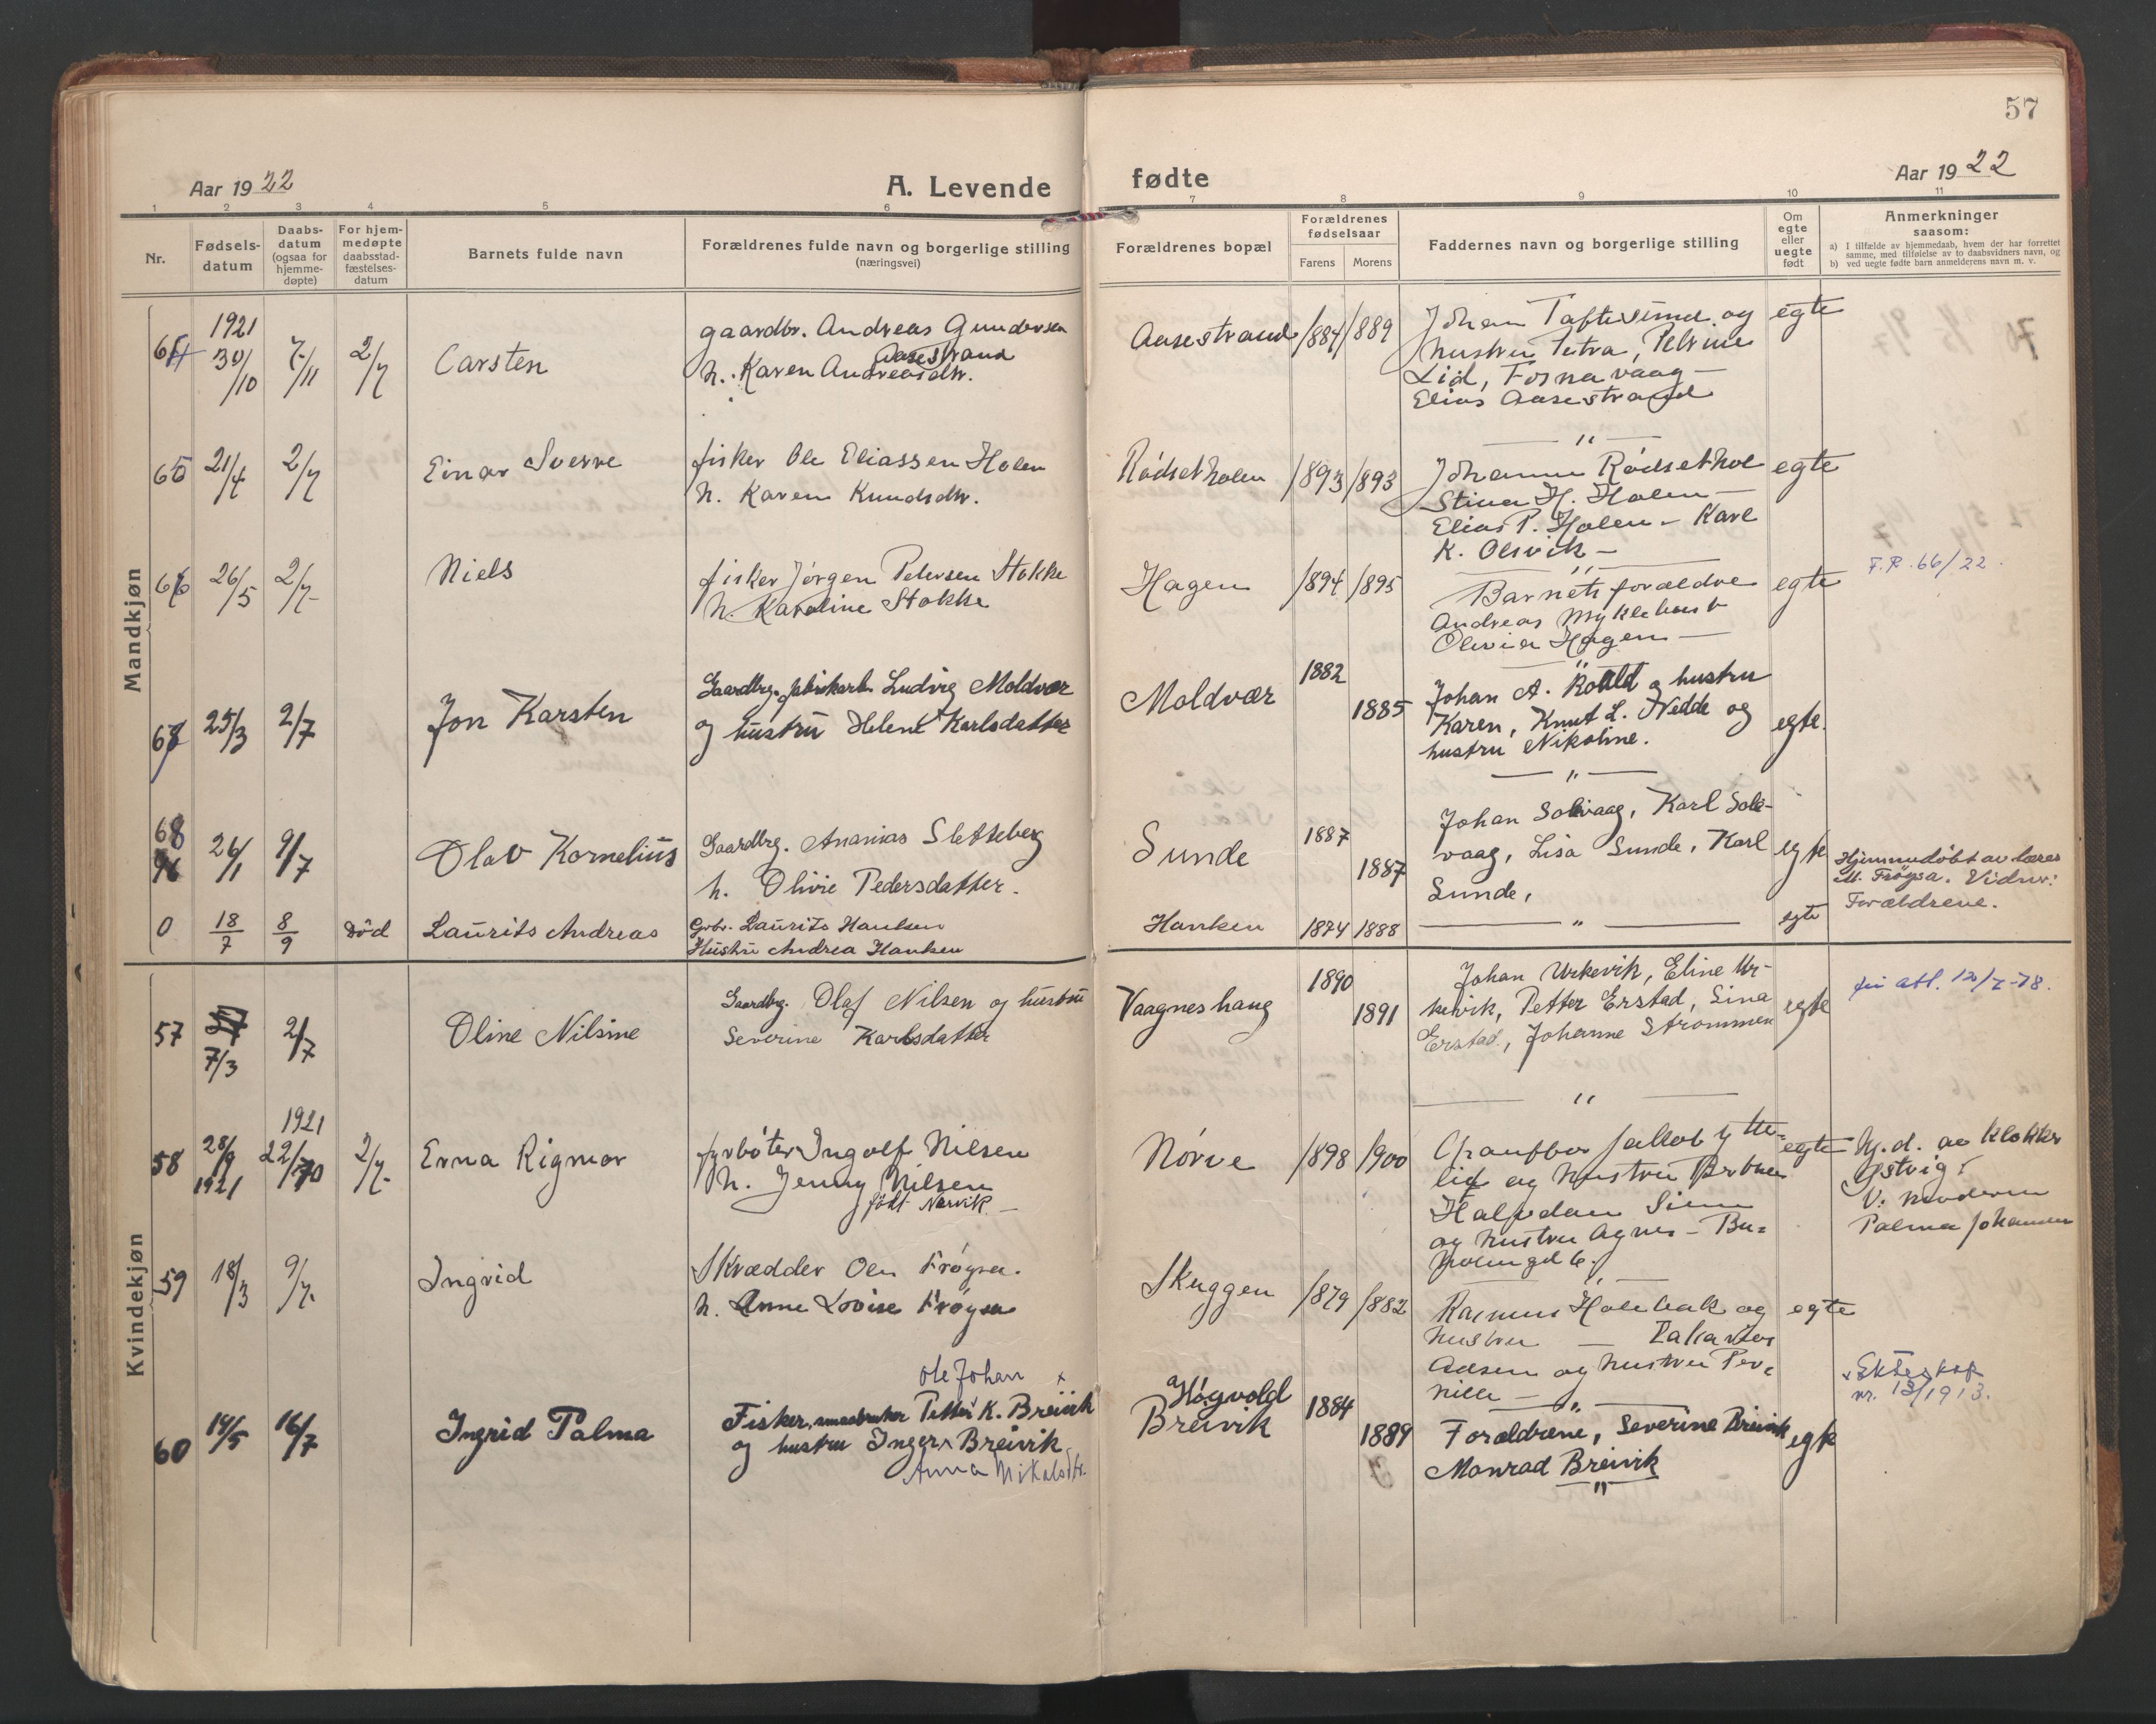 57
Aar 1922
A. Levende
fødte
Aar 1922
1 2 3 4 5 6 7 8 9 10 11
Nr.
Fødsels-
datum
Daabs-
datum
(ogsaa for
hjemme-
døpte)
For hjem-
medøpte
daabsstad-
fæstelses-
datum
Barnets fulde navn
Forældrenes fulde navn og borgerlige stilling
(næringsvei)
Forældrenes bopæl
Forældrenes
fødselsaar
Farens Morens
Faddernes navn og borgerlige stilling
Om
egte
eller
uegte
født
Anmerkninger
saasom:
a) I tilfælde av hjemmedaab, hvem der har forrettet
samme, med tilføielse av to daabsvidners navn, og
b) ved uegte fødte barn anmelderens navn m. v.
Mandkjøn
64
1921
30/10
7/11
2/7
Carsten
gaardbr. Andreas Gundersen
Aasestrand
h. Karen Andreasdtr.
Aasestrand
1884
1889
Johan Taftesund og
hustru Petra, Petrine
Lid, Fosnavaag —
Elias Aasestrand
— " —
egte
65
21/4
2/7
Einar Sverre
fisker Ole Eliassen Holen
h. Karen Knudsdtr.
Rødsetholen
1893
1893
Johanne Rødsethol
Stina H. Holen —
Elias P. Holen — Karl
K. Olsvik —
— " —
egte
66
26/5
2/7
Niels
fisker Jørgen Petersen Stokke
h. Karoline Stokke
Hagen
1894
1895
Barnets forældre
Andreas Myklebust
Olivia Hagen —
— " —
egte
F.R. 66/22.
67
25/3
2/7
Jon Karsten
Gaardbrg. fabrikarb. Ludvig Moldvær
og hustru Helene Karlsdatter
Moldvær
1882
1885
Johan A. Roald og hustru
Karen, Knut L. Nedde og
hustru Nikoline.
— " —
egte.
68
26/1
9/7
Olav Kornelius
Gaardbrg. Ananias Sletteberg
h. Olivie Pedersdatter.
Sunde
1887
1887
Johan Solevaag, Karl Sole-
vaag, Lisa Sunde, Karl
Sunde,
egte
Hjemmedøbt av lærer
M. Frøysa. Vidner:
Forældrene.
0
18/7
8/9
Død
Laurits Andreas
Grbr. Laurits Hanken
Hustru Andrea Hanken
Hanken
1874
1888
— " —
egte
Kvindekjøn
57
7/3
2/7
Oline Nilsine
Gaardbrg. Olaf Nilsen og hustru
Severine Karlsdatter
Vaagneshaug
1890
1891
Johan Urkevik, Eline Ur-
kevik, Petter Erstad, Sina
Erstad, Johanne Strømmen
— " —
egte
att. 12/7-78.
58
28/9
1921
1921
22/10
2/7
Erna Rigmor
fyrbøter Ingolf Nilsen
h. Jenny Nilsen
født Narvik —
Nørve
1898
1900
Chauffør Jakob Ytte-
lid og hustru
Halfdan
og hustru Agnes — Bu-
holmgd 6.
— " —
egte
Hj.d. av klokker
Ystvig
V: moderen
Palma Johansen
59
18/3
9/7
Ingrid
Skrædder Ole Frøysa.
h. Anne Lovise Frøysa
Skuggen
1879
1882
Rasmus Holebak og
hustru — Zakarias
Aasen og hustru Per-
nille —
— " —
egte
60
14/5
16/7
Ingrid Palma
Ole Johan x
Fisker, smaabruker Petter K. Breivik
og hustru Inger x Breivik
Anna Nikolsdtr.
Høgvold
Breivik
1884
1889
Forældrene, Severine Breivik
Monrad Breivik
"
egte
x Ekteskap
nr. 13/1913.